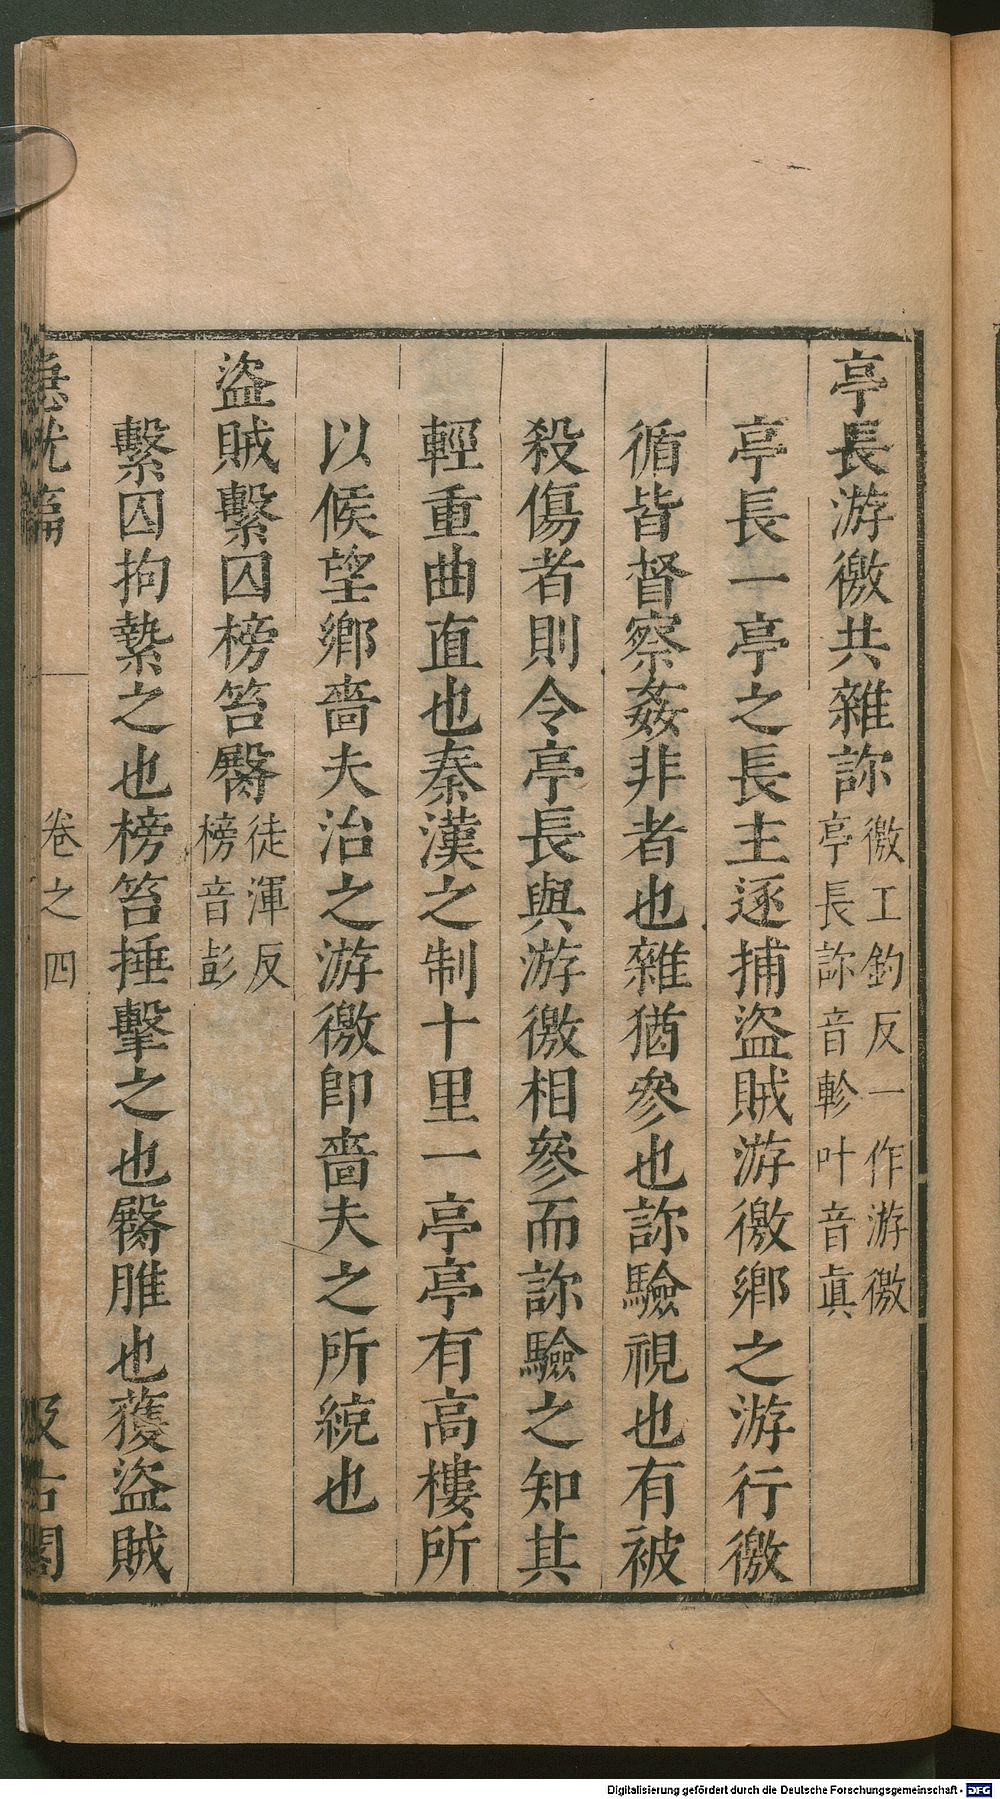 亭長游徼共雜診徼工釣反一作游徼
亭長診音軫叶音眞
亭長一亭之長主逐捕盜賊游徼鄉之游行徼
循皆督察姦非者也雜猶參也診驗視也有被
殺傷者則令亭長與游徼相參而診驗之知其
輕重曲直也秦漢之制十里一亭亭有高樓所
以候望鄉嗇夫治之游徼即嗇夫之所統也
盜賊繫囚榜笞臋徒渾反
榜音彭
繫囚拘縶之也榜笞捶擊之也臋脽也獲盜賊
急就篇
卷之四
汲古閣
Digitalisierung gefördert durch die Deutsche Forschungsgemeinschaft - DFG